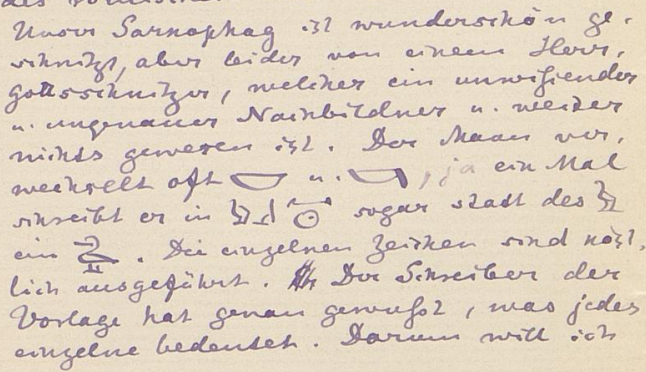 Unser Sarkophag ist wunderschön ge-
schnitzt, aber leider von einem Herr-
gottsschnitzer, welcher ein unwissender
u. ungenauer Nachbildner u. weiter
nichts gewesen ist. Der Mann ver-
wechselt oft 𓎟 u. 𓎡, ja ein Mal
schreibt er in sogar statt des
ein . Die einzelnen Zeichen sind köst-
lich ausgeführt. Der Schreiber der
Vorlage hat genau gewußt, was jedes
einzelne bedeutet. Darum will ich